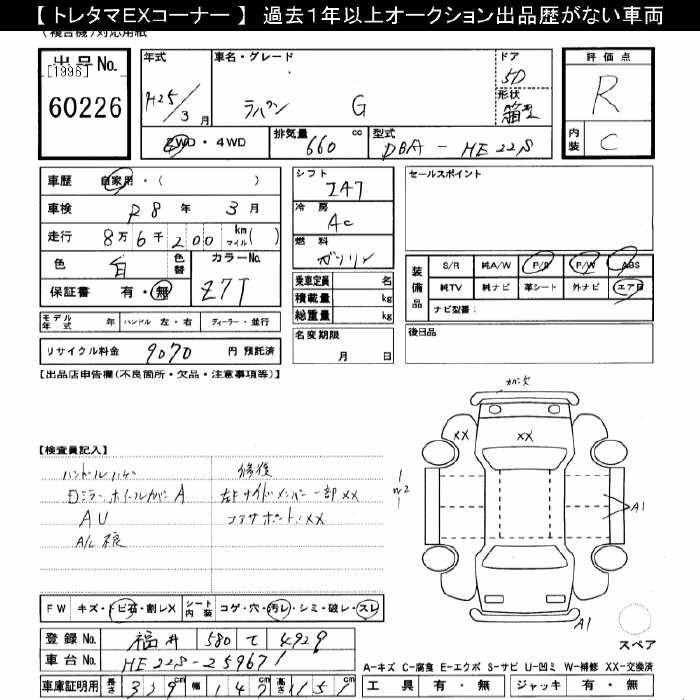 【トレタマEXコーナー】 過去1年以上オークション出品歴がない車両
(複合機)対応用紙
出品No. [1996] 60226
年式 H25/3月
車名・グレード ラパン G
ドア 5D
形状 箱型
2WD・4WD 排気量 660cc 型式 DBA-HE22S
評価点 R
内装 C
車歴 自家用・( )
車検 R8年 3月
走行 8万6千200km マイル( )
色 白 色替 カラーNo. Z7T
保証書 有・無
モデル年式 年 ハンドル 左・右 ディーラー・並行
リサイクル料金 9070 円 預託済
シフト IAT
冷房 AC
燃料 ガソリン
乗車定員 名
積載量 kg
総重量 kg
名変期限 月 日
セールスポイント
装備品 S/R 純A/W P/S P/W ABS
純TV 純ナビ 革シート 外ナビ エアB
ナビ型番:
後日品
【出品店申告欄(不良箇所・欠品・注意事項等)】
【検査員記入】
ハンドル
A
AU
修復
XX
XX
カバー欠
XX XX
A1
A1
FW キズ・トビ石・割レX シート内装 コゲ・穴・汚レ・シミ・破レ・スレ
登録No. 福井 580 て 4929
車台No. HE22S-259671
車庫証明用 長さ 339cm 幅 147cm 高さ 151cm
スペア
A-キズ C-腐食 E-エクボ S-サビ U-凹ミ W-補修 XX-交換済
工具 有・無 ジャッキ 有・無